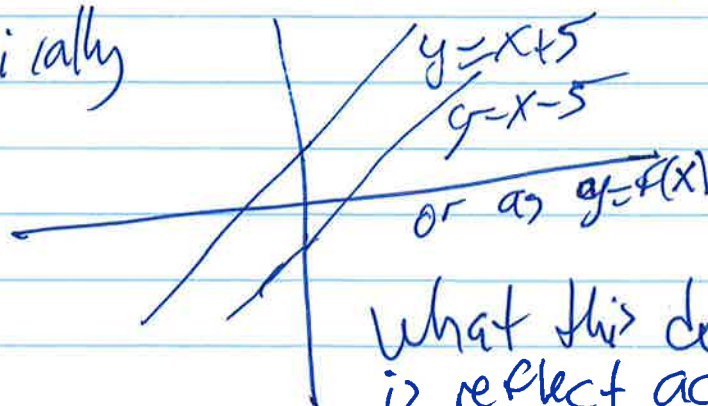 ically
y=x+5
y=x-5
or as y=f(x)
What this
is reflect